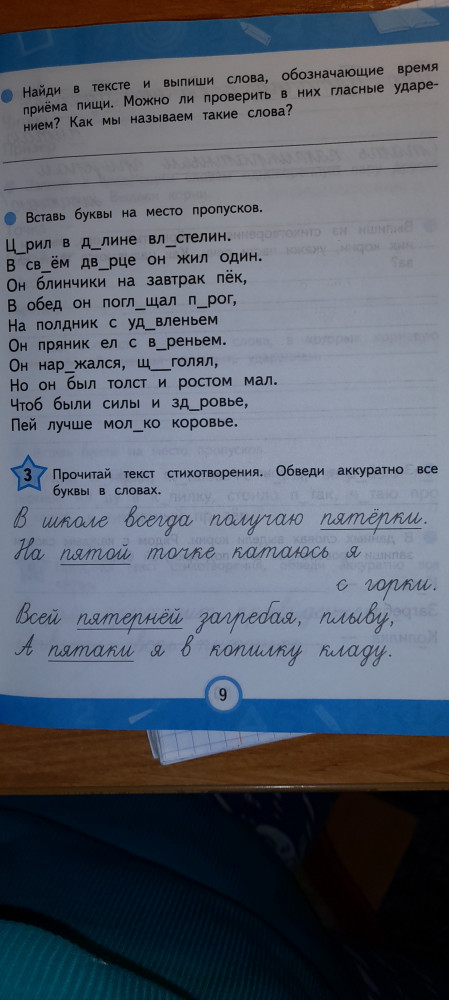 Найди в тексте и выпиши слова, обозначающие время
приёма пищи. Можно ли проверить в них гласные ударе-
нием? Как мы называем такие слова?
Вставь буквы на место пропусков.
Ц_рил в д_лине вл_стелин.
В св_ём дв_рце он жил один.
Он блинчики на завтрак пёк,
В обед он погл_щал п_рог,
На полдник с уд_вленьем
Он пряник ел с в_реньем.
Он нар_жался, щ__голял,
Но он был толст и ростом мал.
Чтоб были силы и зд_ровье,
Пей лучше мол_ко коровье.
3 Прочитай текст стихотворения. Обведи аккуратно все
буквы в словах.
В школе всегда получаю пятёрки.
На пятой точке катаюсь я
с горки.
Всей пятернёй загребая, плыву,
А пятаки я в копилку кладу.
9